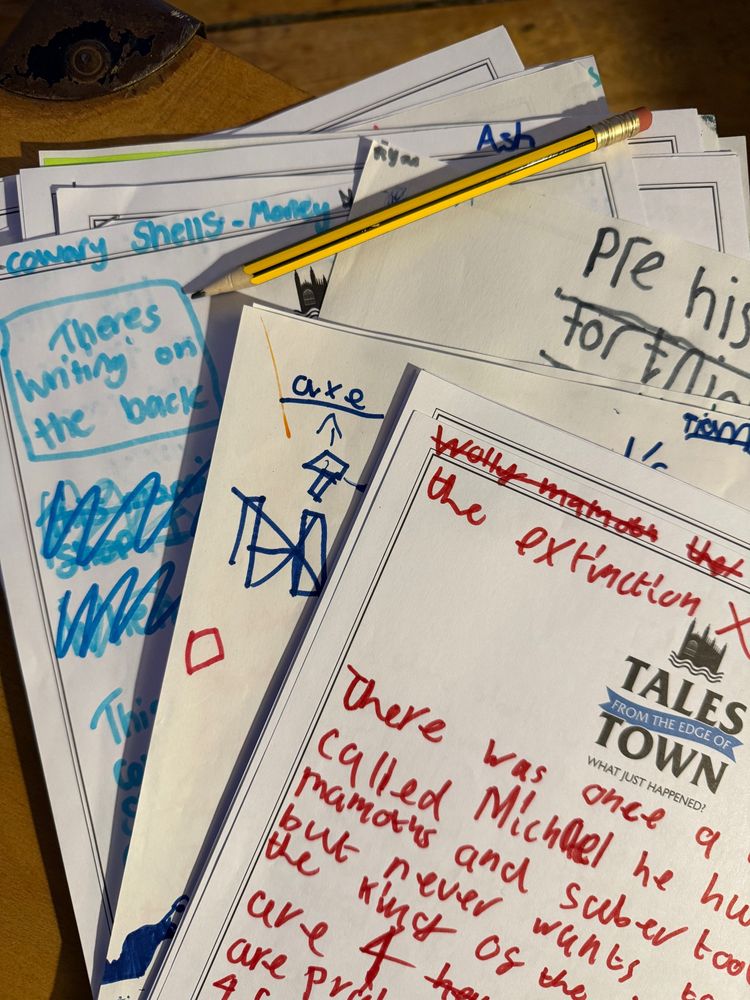 Ash
cowary Shells - Money
Theres
writing on
the back
This
Pre his
for
axe
Wolly mamoth
the extinction X
TALES
FROM THE EDGE OF
TOWN
WHAT JUST HAPPENED?
There was once a
called Michael he hu
mamoths and saber too
but never wants to
the kind of the
are 4
are